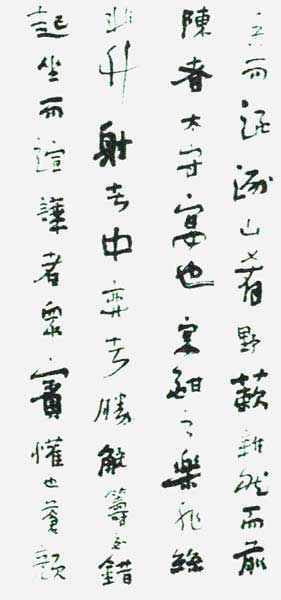 香而酒洌山肴野蔌雜然而前
陳者太守宴也宴酣之樂非絲
非竹射者中弈者勝觥籌交錯
起坐而諠譁者眾賓懽也蒼顏